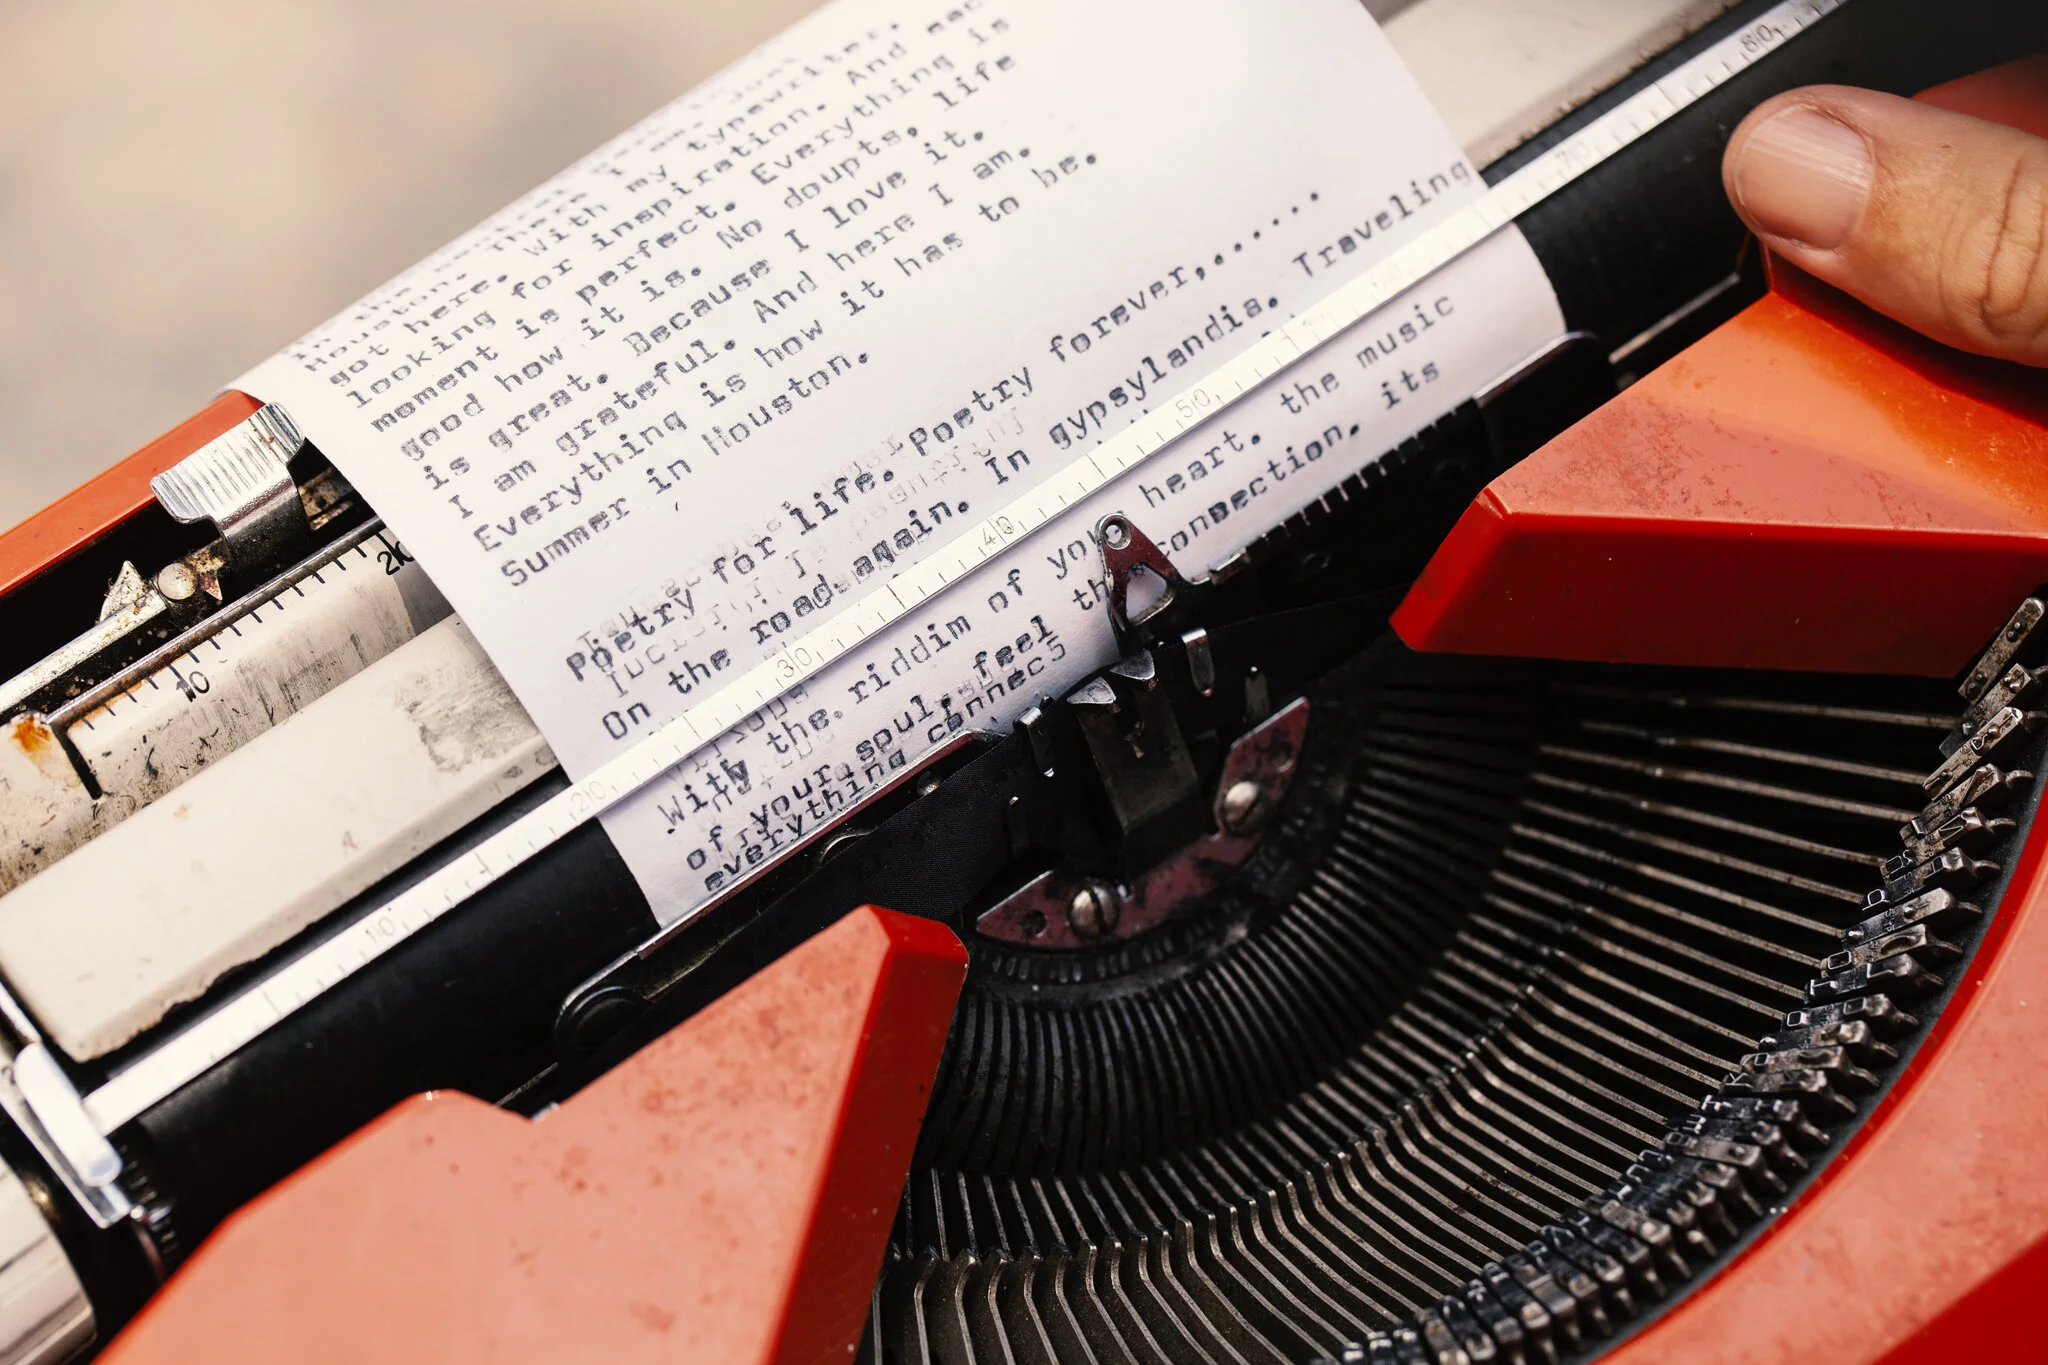 Houston. There
got here. With my typewriter.
looking for inspiration. And eac
moment is perfect. Everything is
good how it is. No doupts, life
is great. Because I love it.
I am grateful. And here I am.
Everything is how it has to be.
Summer in Houston.
Poetry for life. Poetry forever,......
On the road again. In gypsylandia. Traveling
With the riddim of your heart. the music
of your soul, feel the connection. its
everything connec5
10
20
10
20
30
40
50
70
80